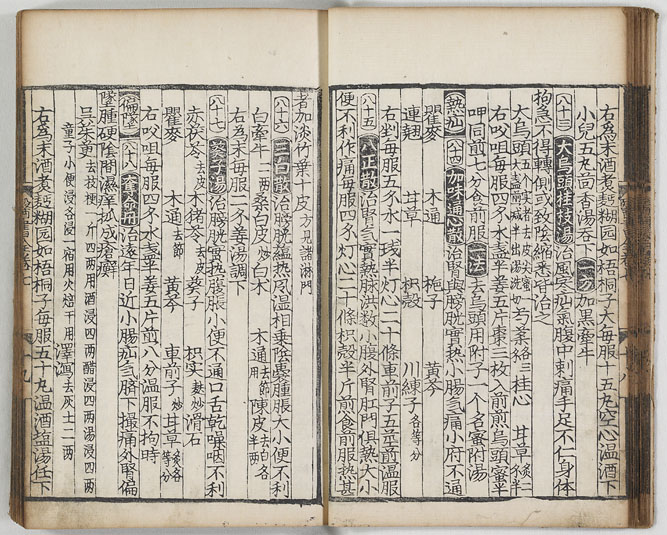 右為末酒煮麪糊圓如梧桐子大每服十五丸空心温酒下
小兒五丸茴香湯吞下 一方加黑牽牛
八十三 大烏頭桂枝湯 治風寒疝氣腹中刺痛手足不仁身体
拘急不得轉側或致陰縮悉皆治之
大烏頭五个實者去皮尖蜜一大盞煎减半出湯洗切 芍薬 桂心 甘草
右㕮咀每服四錢水盞半姜五片棗三枚入前煎烏頭蜜半
呷同前七分食前服 一法去烏頭用附子一个名蜜附湯
熱疝 八十四 加味通心散 治腎与膀胱實熱小腸氣痛小府不通
瞿麥 木通 梔子 黄芩
連翹 甘草 枳殼 川練子各等分
右剉每服五錢水一琖半灯心二十條車前子五莖前温服
八十五 八正散 治腎氣實熱脉洪數小腹外腎肛門俱熱大小
便不利作痛每服四錢灯心二十條枳殼半片煎食前服熱甚
者加淡竹葉十皮方見諸淋門
八十六 三白散 治膀胱藴熱風温相乗陰囊腫脹大小便不利
白牽牛二两 桑白皮炒 白术 木通去節 陳皮去白各半两
右為末每服二錢姜湯調下
八十七 葵子湯 治膀胱實熱腹脹小便不通口舌乾噪咽不利
赤茯苓去皮 木猪苓去皮 葵子 枳实麩炒 滑石
瞿麥 木通去節 黄芩 車前子炒 甘草炙各等分
右㕮咀每服四錢水盞半姜五片煎八分温服不拘時
偏墜 八十八 奪命丹 治逐年日近小腸疝氣臍下撮痛外腎偏
墜腫硬陰間濕痒抓成瘡癬
吳茱萸去枝梗一斤四两用酒浸四两醋浸四两湯浸四两童子小便浸各浸一宿用火焙干用 澤瀉去灰土二两
右為末酒煮麪糊圓如梧桐子每服五十丸温酒塩湯任下